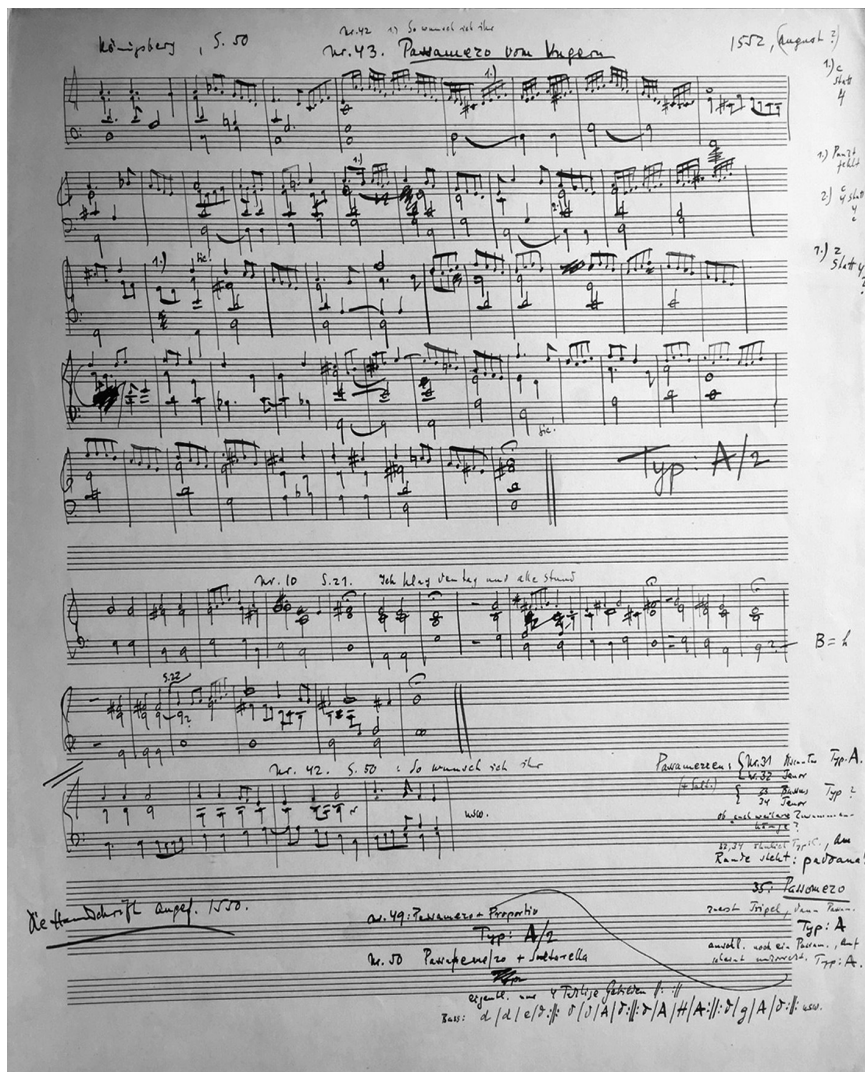 Nr. 42 1) So wunsch ich ihr
Königsberg, S. 50
Nr. 43. Passamezo vom Ungern
1552, (August?)
1.) c
statt
4
1.)
1.) Punkt
fehlt
2.) c
4 statt
4
c
1.)
2.
1.) 2
statt 4
?
1.) sic!
sic!
Typ: A/2
Nr. 10 S. 21. Ich klag den tag und alle stund
B = h
S. 22
?
Nr. 42. S. 50: So wunsch ich ihr
usw.
Passamezzen: Nr. 31 Typ. A.
Nr. 32 Tenor
33 Bassus Typ?
34 Tenor
ob noch weitere Zusammen-
hänge?
33, 34 Typ, am
Rande steht: padoana!
35: Passamezo
zuerst Tripel, dann Passam.
Typ: A
anschl. noch ein Passam., auf
Typ: A.
Die Handschrift angef. 1550.
Nr. 49: Passamezo + Proportio
Typ: A/2
Nr. 50 + Saltorella
eigentl. nur 4 Teilige
Bass: d/d/e/d :||: d/d/A/d :||: d/A/H/A :||: d/g/A/d :||: usw.